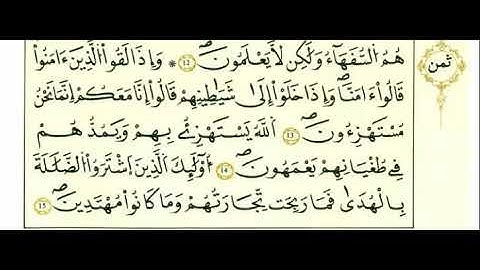 هُمُ اُ۬لسُّفَهَآءُ وَلَٰكِن لَّا يَعْلَمُونَۖ 12 * وَإِذَا لَقُوا۟ اُ۬لذِينَ ءَامَنُوا۟
قَالُوٓا۟ ءَامَنَّاۖ وَإِذَا خَلَوْا۟ اِلَىٰ شَيَٰطِينِهِمْ قَالُوٓا۟ إِنَّا مَعَكُمْۖ إِنَّمَا نَحْنُ
مُسْتَهْزِءُونَۖ 13 اَ۬للَّهُ يَسْتَهْزِئُ بِهِمْ وَيَمُدُّهُمْ
فِے طُغْيَٰنِهِمْ يَعْمَهُونَۖ 14 أُوْلَٰٓئِكَ اَ۬لذِينَ اَ۪شْتَرَوُا۟ اُ۬لضَّلَٰلَةَ
بِالْهُدَىٰ فَمَا رَبِحَت تِّجَٰرَتُهُمْ وَمَا كَانُوا۟ مُهْتَدِينَۖ 15
ثمن